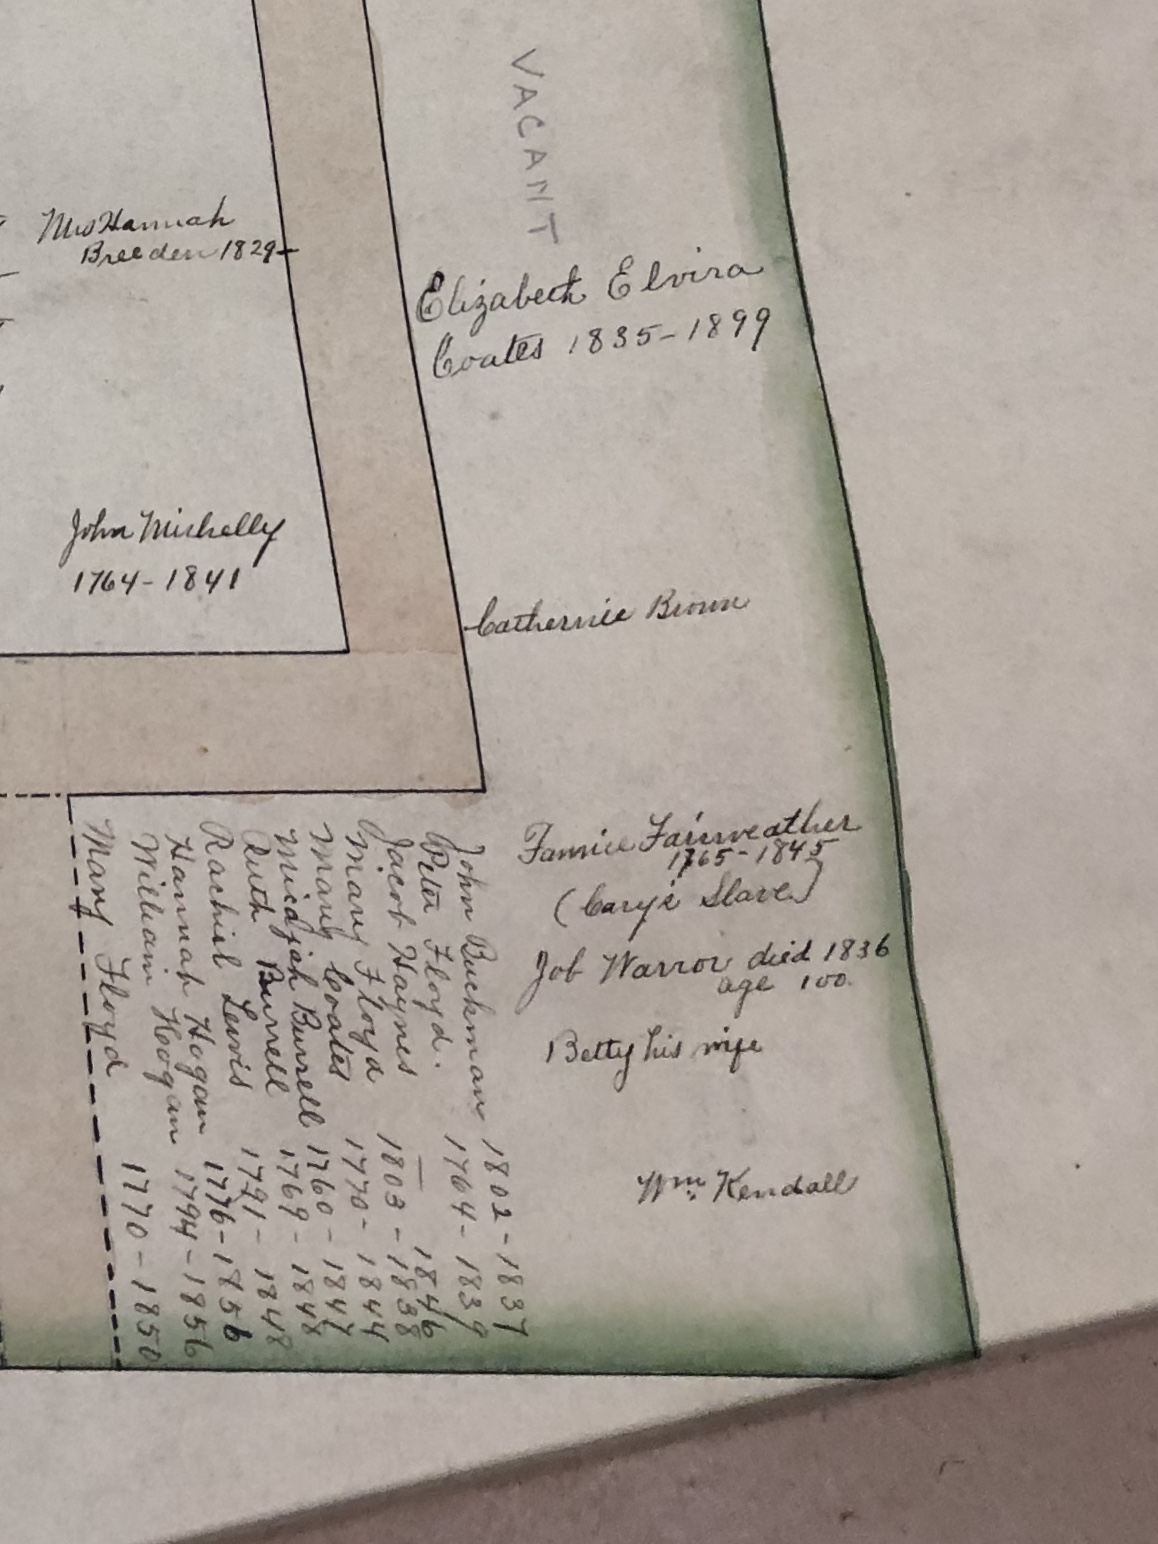 VACANT
Mrs Hannah
Breeden 1829-
Elizabeth Elvira
Coates 1835-1899
John Michelly
1764-1841
Catherine Brown
Fannie Fairweather
1765-1845
(Cary's Slave)
Job Warror died 1836
age 100.
Betty his wife
Wm. Kendall
John Buckman 1802-1837
Peter Floyd. 1764-1839
Jacob Haynes — 1846
Mary Floyd 1803-1838
Mary Coates 1770-1844
Micajah Burrell 1760-1847
Ruth Burrell 1769-1848
Rachiel Lewis 1791-1848
Hannah Hogan 1776-1856
William Hogan 1794-1856
Mary Floyd 1770-1850